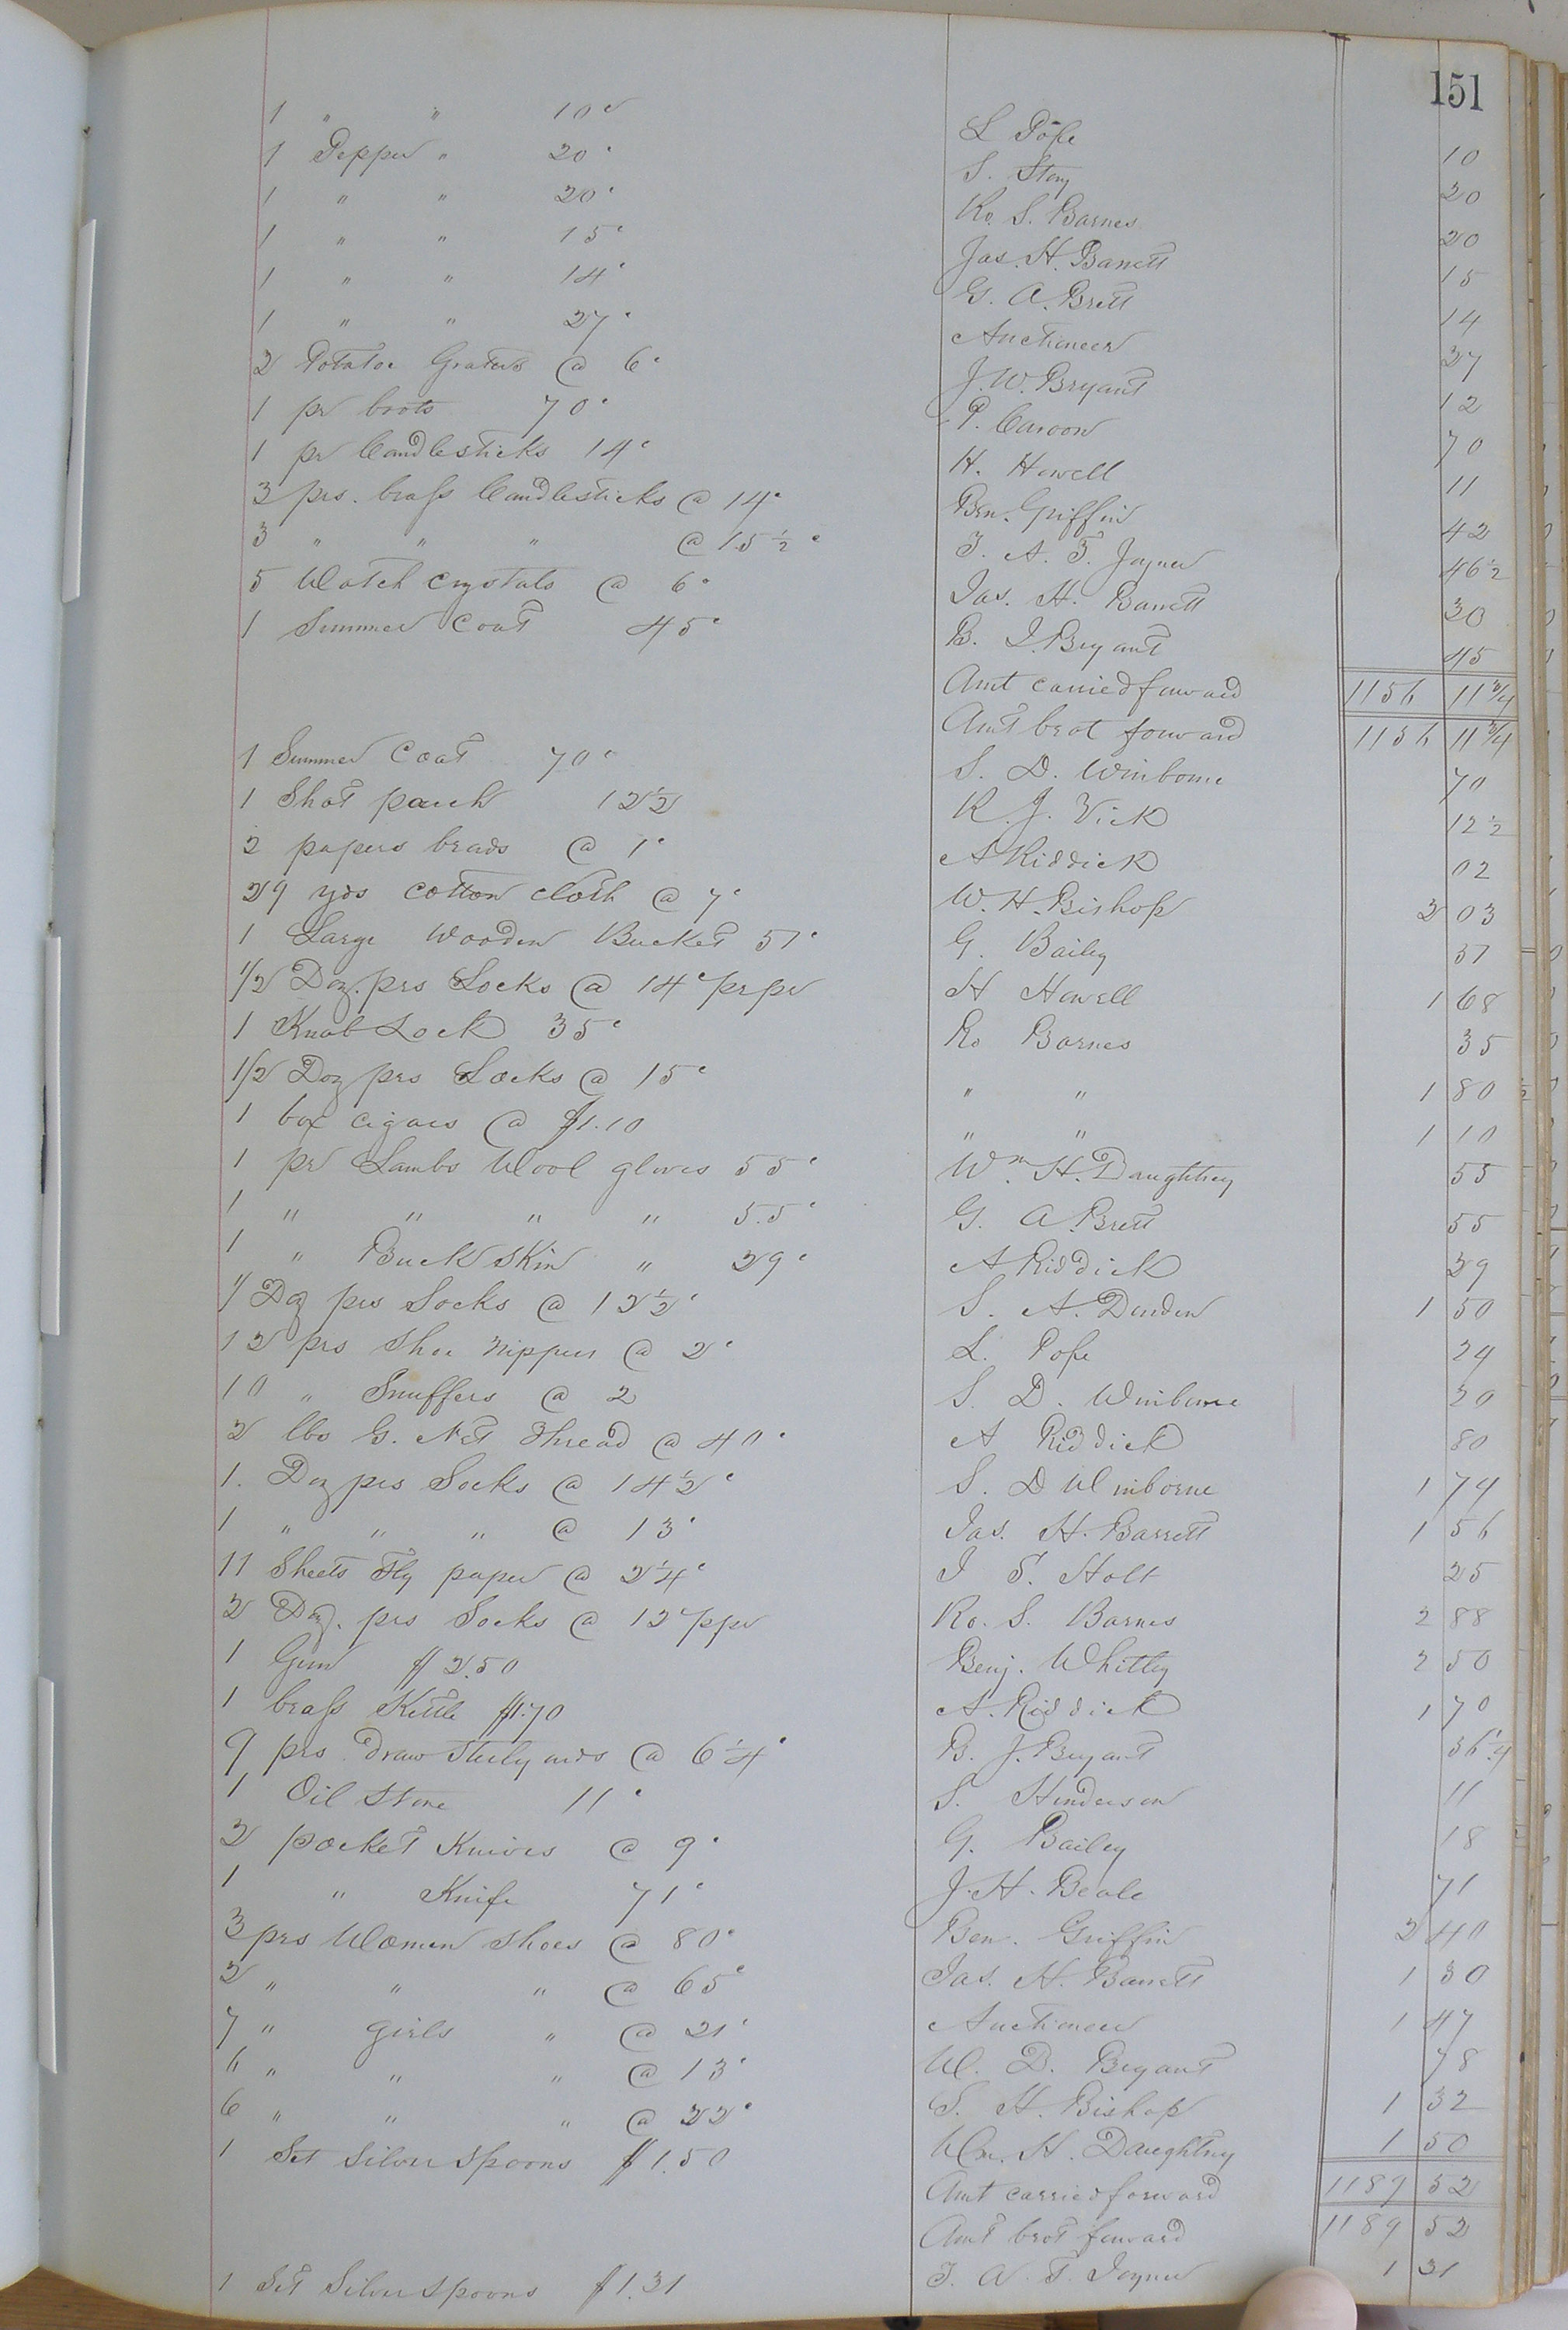 151
1 " " 10c L Pope 10
1 Pepper " 20c S. Story 20
1 " " 20c Ro. S. Barnes 20
1 " " 15c Jas. H. Barrett 15
1 " " 14c G. A. Brett 14
1 " " 27c Auctioneer 27
2 Potatoe Graters @ 6c J. W. Bryant 12
1 pr boots 70c P. 70
1 pr Candlesticks 14c H. Howell 11
3 prs. brass Candlesticks @ 14c Ben. Griffin 42
3 " " " @ 15 1/2c T. A. T. Joyner 46 1/2
5 Watch Crystals @ 6c Jas. H. Barrett 30
1 Summer Coat 45c B. J. Bryant 45
Amt carried forward 1156 11 3/4
Amt brot forward 1156 11 3/4
1 Summer Coat 70c S. D. Winborne 70
1 Shot pouch 12 1/2 R. J. Vick 12 1/2
2 papers brads @ 1c A Riddick 02
29 yds cotton cloth @ 7c W. H. Bishop 2 03
1 Large Wooden Bucket 57c G. Bailey 57
1/2 Doz. prs Socks @ 14c pr pr H Howell 1 68
1 Knob Lock 35c Ro Barnes 35
1/2 Doz prs Socks @ 15c " " 1 80
1 box cigars @ $1.10 " " 1 10
1 pr Lambs Wool gloves 55c Wm. H. Daughtrey 55
1 " " " " 55c G. A. Brett 55
1 " Buck Skin " 29c A Riddick 29
1 Doz prs Socks @ 12 1/2c S. A. Darden 1 50
12 prs Shoe Nippers @ 2c L. Pope 24
10 " Snuffers @ 2 S. D. Winborne 20
2 lbs G. Net Thread @ 40c A Riddick 80
1. Doz prs Socks @ 14 1/2c S. D Winborne 1 74
1 " " " @ 13c Jas. H. Barrett 1 56
11 Sheets Fly paper @ 2 1/4c J S. Holt 25
2 Doz. prs Socks @ 12c ppr Ro. S. Barnes 2 88
1 Gun $2.50 Benj. Whitley 2 50
1 brass Kettle $1.70 A. Riddick 1 70
9 prs draw Steelyards @ 6 1/4c B. J. Bryant 56 1/4
1 Oil Stone 11c S. Henderson 11
2 pocket Knives @ 9c G. Bailey 18
1 " Knife 71c J. H. Beale 71
3 prs Women Shoes @ 80c Ben. Griffin 2 40
2 " " " @ 65c Jas. H. Barrett 1 30
7 " girls " @ 21c Auctioneer 1 47
6 " " " @ 13c W. D. Bryant 78
6 " " " @ 22c S. H. Bishop 1 32
1 Set Silver Spoons $1.50 Wm. H. Daughtrey 1 50
Amt carried forward 1189 52
Amt brot forward 1189 52
1 Set Silver Spoons $1.31 T. A. T. Joyner 1 31